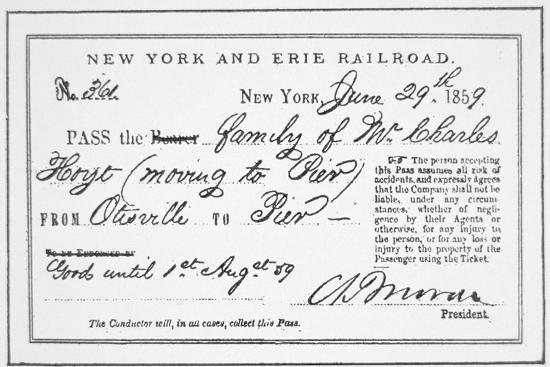 NEW YORK AND ERIE RAILROAD.
No. 361. NEW YORK, June 29.th 1859.
PASS the Bearer family of Mr Charles
Hoyt (moving to Pier)
FROM Otisville TO Pier —
TO BE ENDORSED BY
Good until 1st Augst 59
☞ The person accepting
this Pass assumes all risk of
accidents, and expressly agrees
that the Company shall not be
liable, under any circum-
stances, whether of negli-
gence by their Agents or
otherwise, for any injury to
the person, or for any loss or
injury to the property of the
Passenger using the Ticket.
President.
The Conductor will, in all cases, collect this Pass.